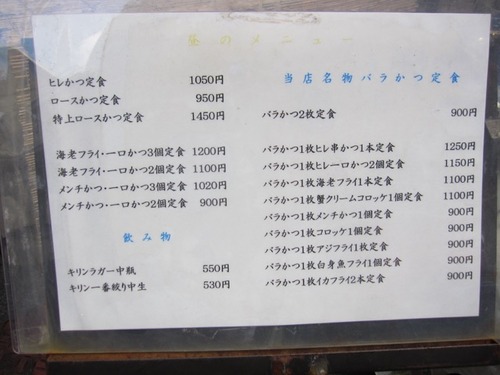 昼のメニュー
ヒレかつ定食 1050円
ロースかつ定食 950円
特上ロースかつ定食 1450円
海老フライ・一口かつ3個定食 1200円
海老フライ・一口かつ2個定食 1100円
メンチかつ・一口かつ3個定食 1020円
メンチかつ・一口かつ2個定食 900円
飲み物
キリンラガー中瓶 550円
キリン一番絞り中生 530円
当店名物バラかつ定食
バラかつ2枚定食 900円
バラかつ1枚ヒレ串かつ1本定食 1250円
バラかつ1枚ヒレ一口かつ2個定食 1150円
バラかつ1枚海老フライ1本定食 1100円
バラかつ1枚蟹クリームコロッケ1個定食 1100円
バラかつ1枚メンチかつ1個定食 900円
バラかつ1枚コロッケ1個定食 900円
バラかつ1枚アジフライ1枚定食 900円
バラかつ1枚白身魚フライ1個定食 900円
バラかつ1枚イカフライ2本定食 900円